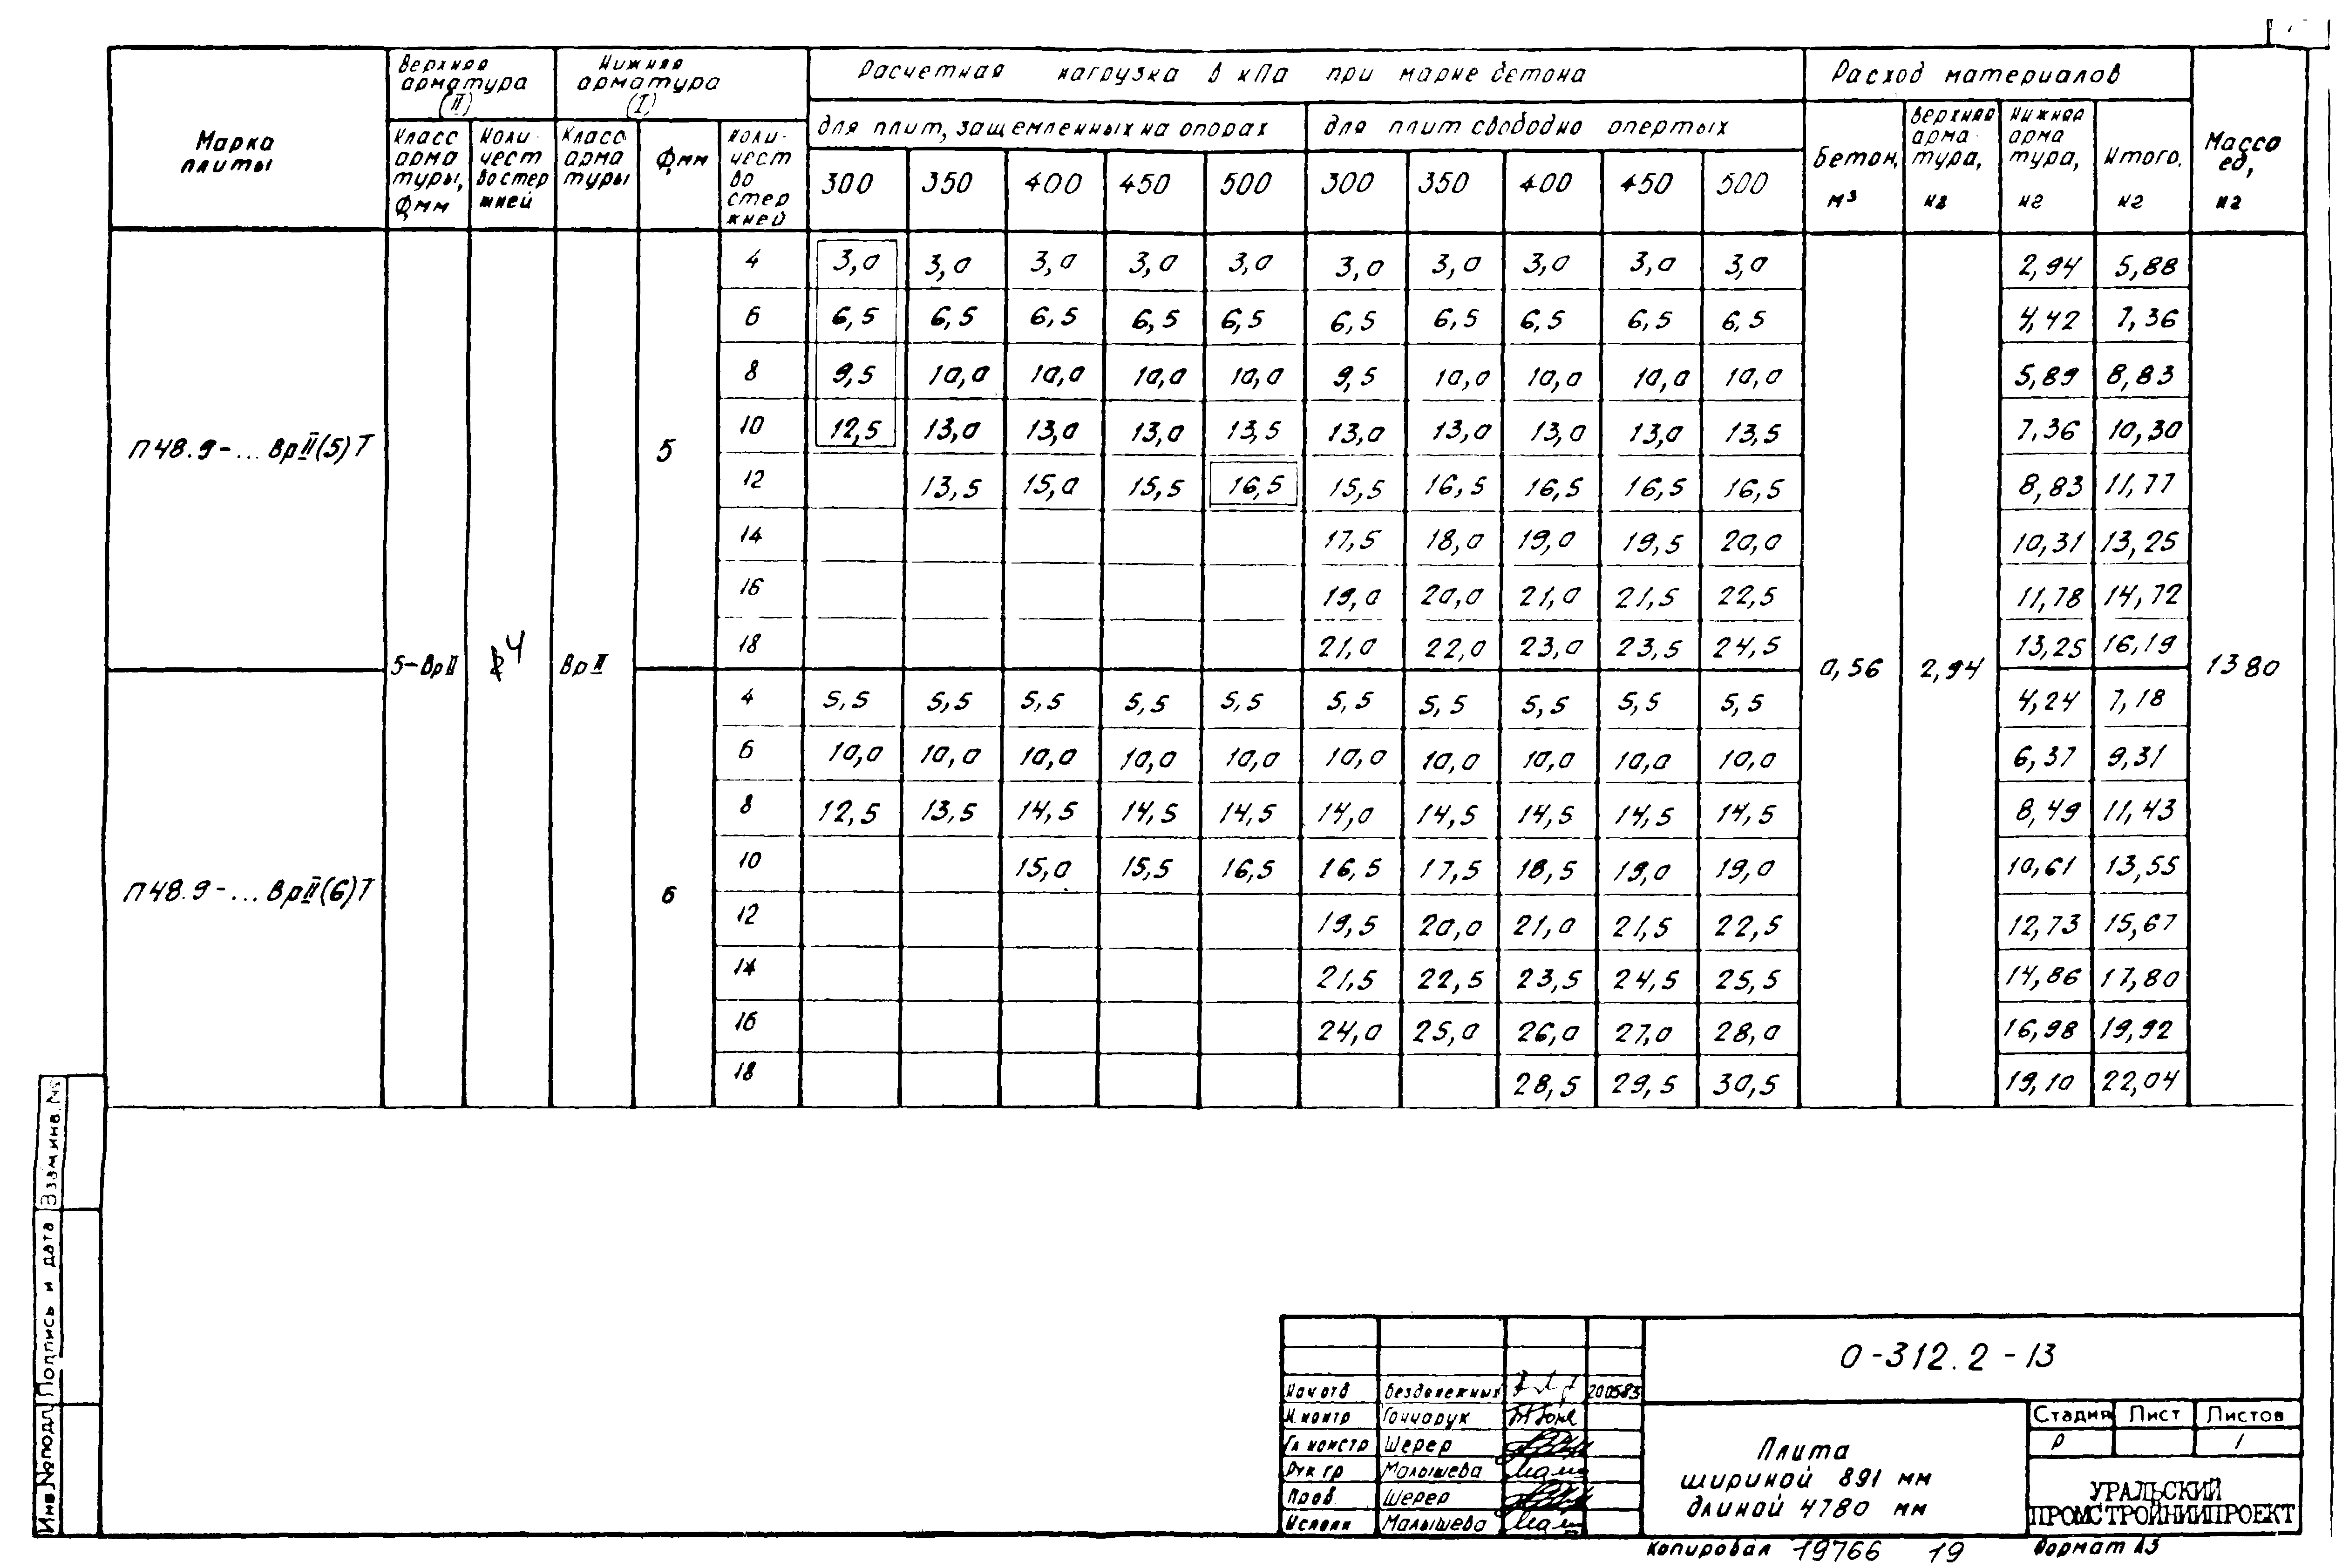 Марка плиты
Верхняя арматура (II)
Нижняя арматура (I)
Расчетная нагрузка в кПа при марке бетона
Расход материалов
Масса ед, кг
Класс арматуры, Фмм
Количество стержней
Класс арматуры
Фмм
Количество стержней
для плит, защемленных на опорах
для плит свободно опертых
Бетон, м³
Верхняя арматура, кг
Нижняя арматура, кг
Итого, кг
300 350 400 450 500 300 350 400 450 500
П48.9-...ВрII(5)Т
5-ВрII
4
ВрII
5
0,56
2,94
1380
4 3,0 3,0 3,0 3,0 3,0 3,0 3,0 3,0 3,0 3,0 2,94 5,88
6 6,5 6,5 6,5 6,5 6,5 6,5 6,5 6,5 6,5 6,5 4,42 7,36
8 9,5 10,0 10,0 10,0 10,0 9,5 10,0 10,0 10,0 10,0 5,89 8,83
10 12,5 13,0 13,0 13,0 13,5 13,0 13,0 13,0 13,0 13,5 7,36 10,30
12 13,5 15,0 15,5 16,5 15,5 16,5 16,5 16,5 16,5 8,83 11,77
14 17,5 18,0 19,0 19,5 20,0 10,31 13,25
16 19,0 20,0 21,0 21,5 22,5 11,78 14,72
18 21,0 22,0 23,0 23,5 24,5 13,25 16,19
П48.9-...ВрII(6)Т
6
4 5,5 5,5 5,5 5,5 5,5 5,5 5,5 5,5 5,5 5,5 4,24 7,18
6 10,0 10,0 10,0 10,0 10,0 10,0 10,0 10,0 10,0 10,0 6,37 9,31
8 12,5 13,5 14,5 14,5 14,5 14,0 14,5 14,5 14,5 14,5 8,49 11,43
10 15,0 15,5 16,5 16,5 17,5 18,5 19,0 19,0 10,61 13,55
12 19,5 20,0 21,0 21,5 22,5 12,73 15,67
14 21,5 22,5 23,5 24,5 25,5 14,86 17,80
16 24,0 25,0 26,0 27,0 28,0 16,98 19,92
18 28,5 29,5 30,5 19,10 22,04
Взам.инв.№
Подпись и дата
Инв №подл
0-312.2-13
Нач отд Безденежных 200583
Н.контр Гончарук
Гл констр Шерер
Рук гр Малышева
Пров. Шерер
Исполн Малышева
Плита
шириной 891 мм
длиной 4780 мм
Стадия Лист Листов
Р 1
УРАЛЬСКИЙ
ПРОМСТРОЙНИИПРОЕКТ
Копировал 19766 19 Формат А3